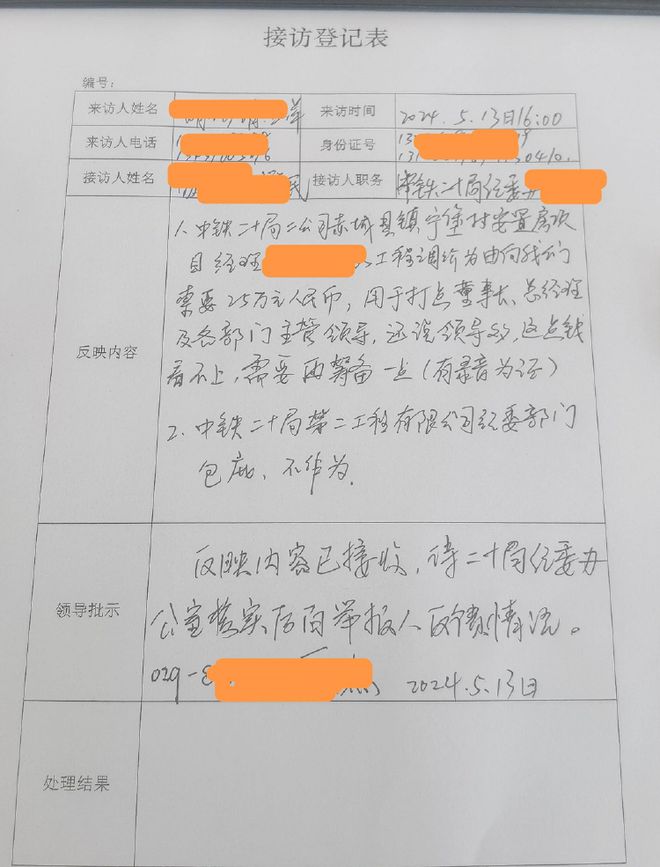 接访登记表
编号：
来访人姓名 来访时间 2024.5.13日16:00
来访人电话 身份证号
接访人姓名 民 接访人职务 中铁二十局纪委办
反映内容
1、中铁二十局二公司赤城县镇宁堡村安置房项
目经理 以工程调价为由向我们
索要25万元人民币，用于打点董事长、总经理
及各部门主管领导，还说领导多，这点钱
看不上，需要再筹备一点（有录音为证）
2、中铁二十局第二工程有限公司纪委部门
包庇、不作为.
领导批示
反映内容已接收，待二十局纪委办
公室落实后向举报人反馈情况。
029-8 2024.5.13日
处理结果